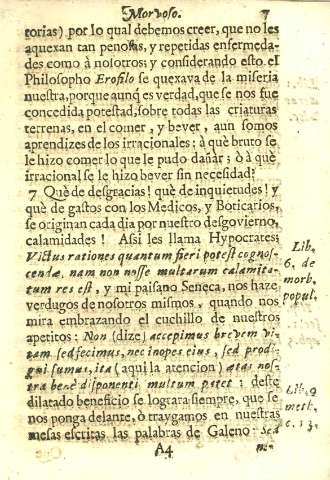 Morvoso. 7
torias) por lo qual debemos creer, que no les
aquexan tan penosas, y repetidas enfermeda-
des como à nosotros; y considerando esto el
Philosopho Erofilo se quexava de la miseria
nuestra, porque aunq̃ es verdad, que se nos fue
concedida potestad, sobre todas las criaturas
terrenas, en el comer, y bever, aun somos
aprendizes de los irracionales: à què bruto se
le hizo comer lo que le pudo dañar; ò à què
irracional se le hizo bever sin necesidad?
7 Què de desgracias! què de inquietudes! y
què de gastos con los Medicos, y Boticarios,
se originan cada dia por nuestro desgovierno,
calamidades! Assi les llama Hypocrates;
Victus rationes quantum fieri potest cognos-
cendæ, nam non nosse multarum calamita-
tum res est, y mi paisano Seneca, nos haze
verdugos de nosotros mismos, quando nos
mira embrazando el cuchillo de nuestros
apetitos: Non (dize) accepimus brevem vi-
tam, sed fecimus, nec inopes eius, sed prodi-
gui sumus, ita (aqui la atencion) ætas nos-
tra benè disponenti multum patet: deste
dilatado beneficio se lograra siempre, que se
nos ponga delante, ò traygamos en nuestras
mesas escritas las palabras de Galeno: Sed
A4
Lib.
6. de
morb.
popul.
Lib. 9
meth.
c. 13.